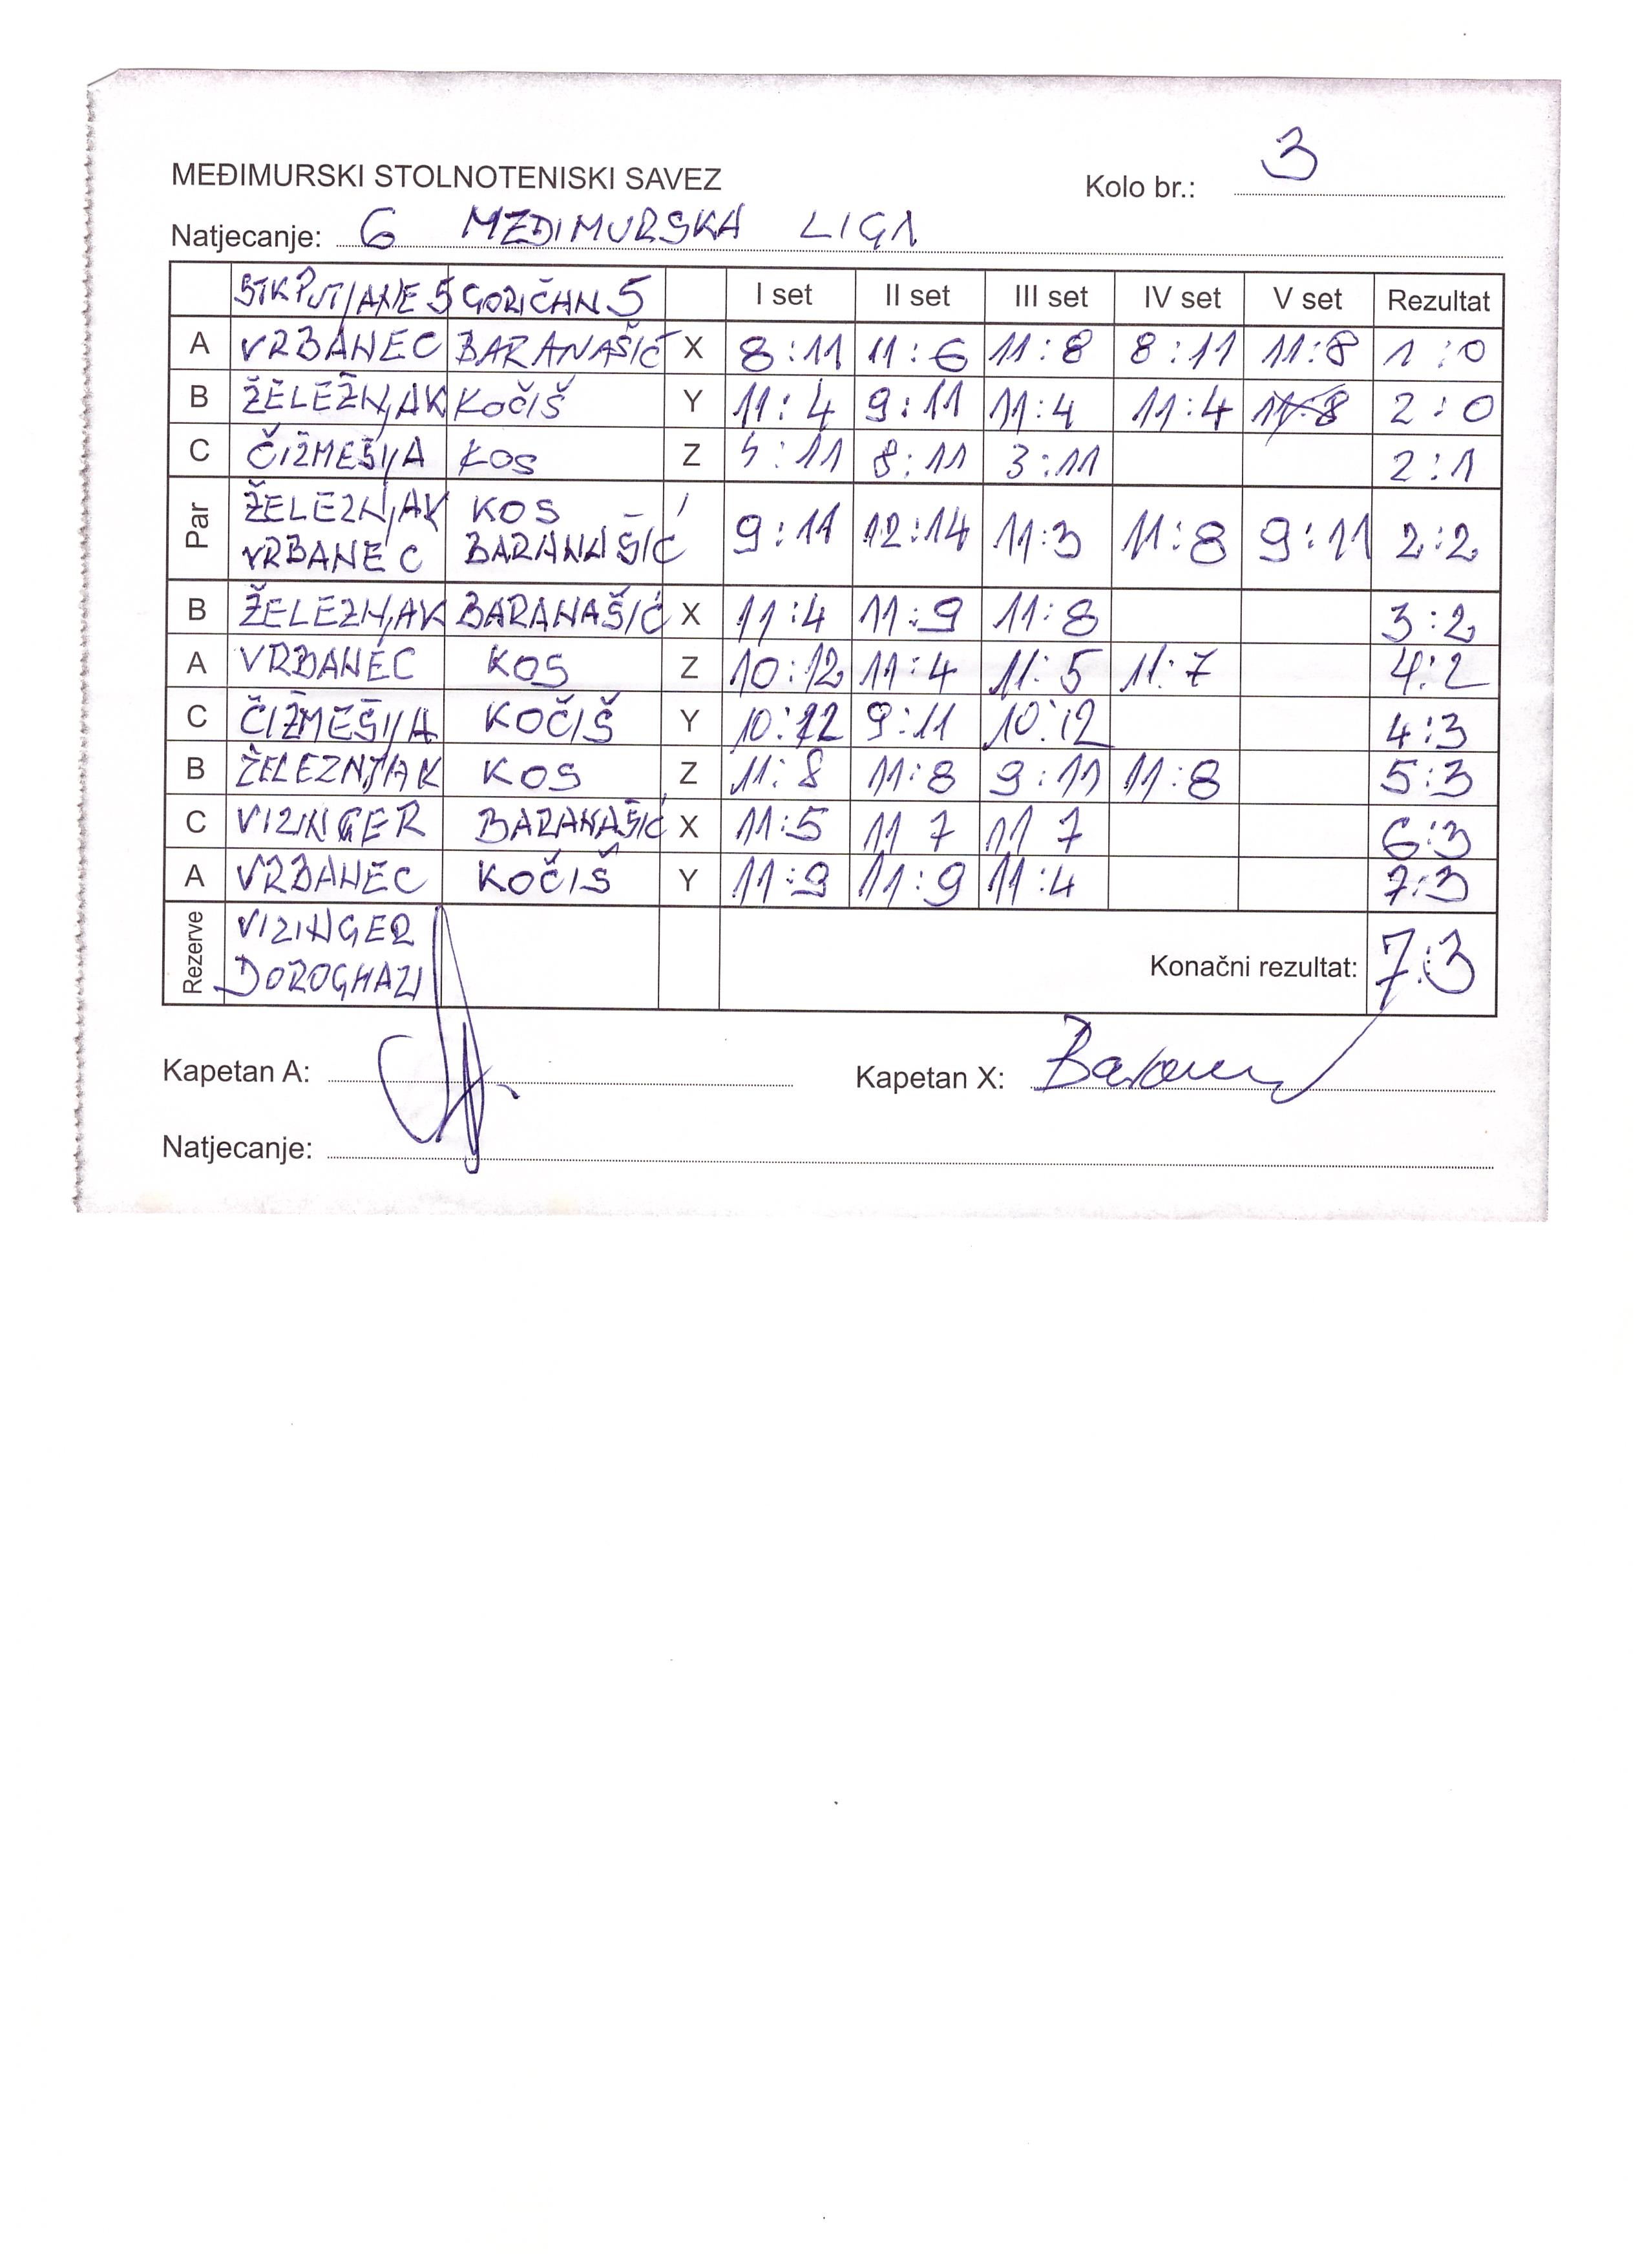 MEĐIMURSKI STOLNOTENISKI SAVEZ Kolo br.: 3
Natjecanje: 6 MEĐIMURSKA LIGA
STK PUTJANE 5 GORIČAN 5 I set II set III set IV set V set Rezultat
A VRBANEC BARANAŠIĆ X 8:11 11:6 11:8 8:11 11:8 1:0
B ŽELEZNJAK KOČIŠ Y 11:4 9:11 11:4 11:4 11:8 2:0
C ČIŽMEŠIJA KOS Z 5:11 8:11 3:11 2:1
Par ŽELEZNJAK KOS
VRBANEC BARANAŠIĆ 9:11 12:14 11:3 11:8 9:11 2:2
B ŽELEZNJAK BARANAŠIĆ X 11:4 11:9 11:8 3:2
A VRBANEC KOS Z 10:12 11:4 11:5 11:7 4:2
C ČIŽMEŠIJA KOČIŠ Y 10:12 9:11 10:12 4:3
B ŽELEZNJAK KOS Z 11:8 11:8 9:11 11:8 5:3
C VIZINGER BARANAŠIĆ X 11:5 11 7 11 7 6:3
A VRBANEC KOČIŠ Y 11:9 11:9 11:4 7:3
Rezerve VIZINGER
DOROGHAZI Konačni rezultat: 7:3
Kapetan A: Kapetan X:
Natjecanje: